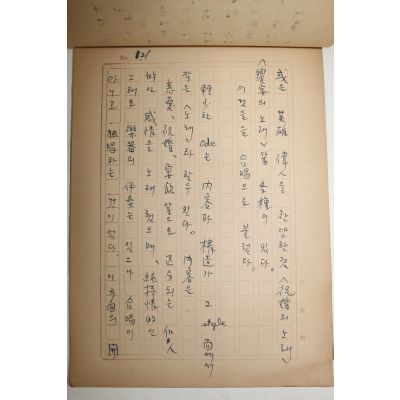 No. 121
或은 英雄 偉人을 찬양한 것 <祝婚의 노래>
<饗宴의 노래> 等 各種이 있다.
이것들을 合唱으로 불렀다.
輕少한 ode는 内容과 構造가 그 style 面에서
작은 <노래>라 할 수 있다. 内容은
恋愛, 祝婚, 宴飲 等으로 区分되는 個人
的인 感情을 노래했으며, 純抒情的인
노래로 樂器의 伴奏는 있으나 合唱이
아니고 独唱하는 것이었다. 이 方面의 開